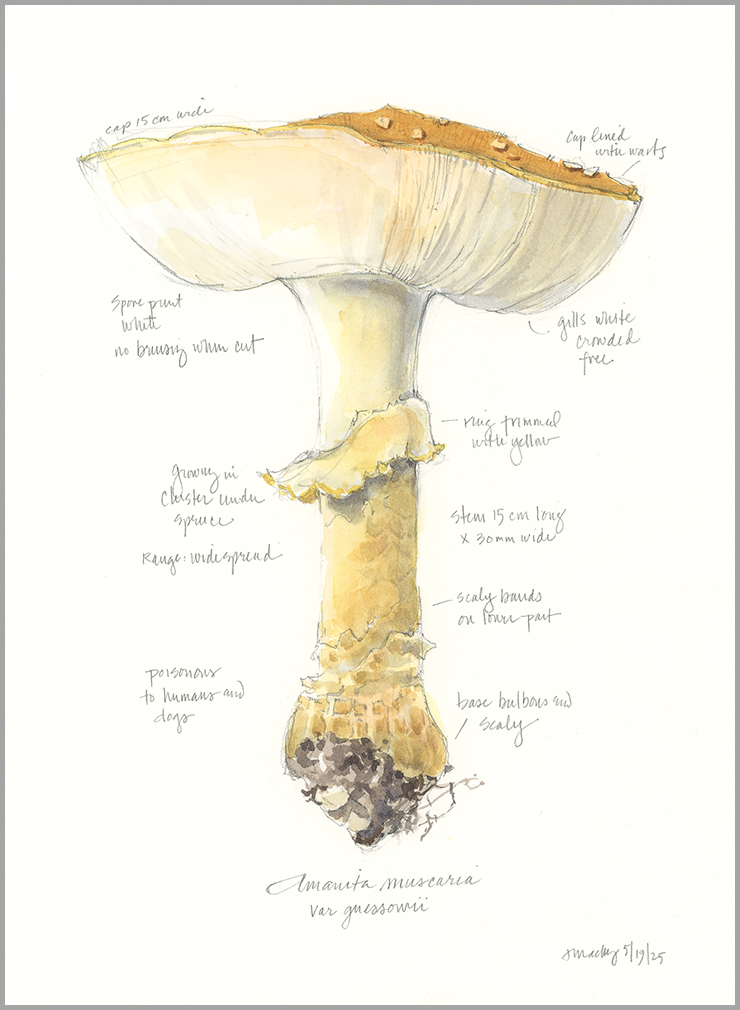 cap 15 cm wide
cap lined
with warts
Spore print
white
no bruising when cut
gills white
crowded
free
ring trimmed
with yellow
growing in
cluster under
spruce
stem 15 cm long
x 30mm wide
Range: widespread
scaly bands
on lower part
poisonous
to humans and
dogs
base bulbous and
scaly
Amanita muscaria
var guessowii
5/19/25